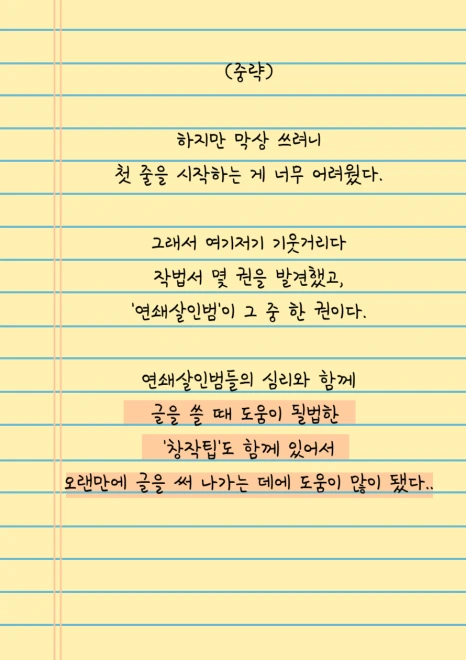 (중략)
하지만 막상 쓰려니
첫 줄을 시작하는 게 너무 어려웠다.
그래서 여기저기 기웃거리다
작법서 몇 권을 발견했고,
'연쇄살인범'이 그 중 한 권이다.
연쇄살인범들의 심리와 함께
글을 쓸 때 도움이 될법한
'창작팁'도 함께 있어서
오랜만에 글을 써 나가는 데에 도움이 많이 됐다..